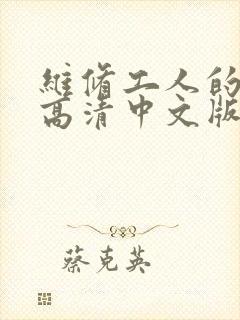 維脩工人的
高清中文版
蔡克英